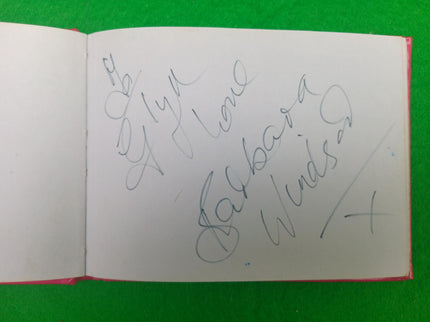 To
Glyn
Love
Barbara
Windsor
X